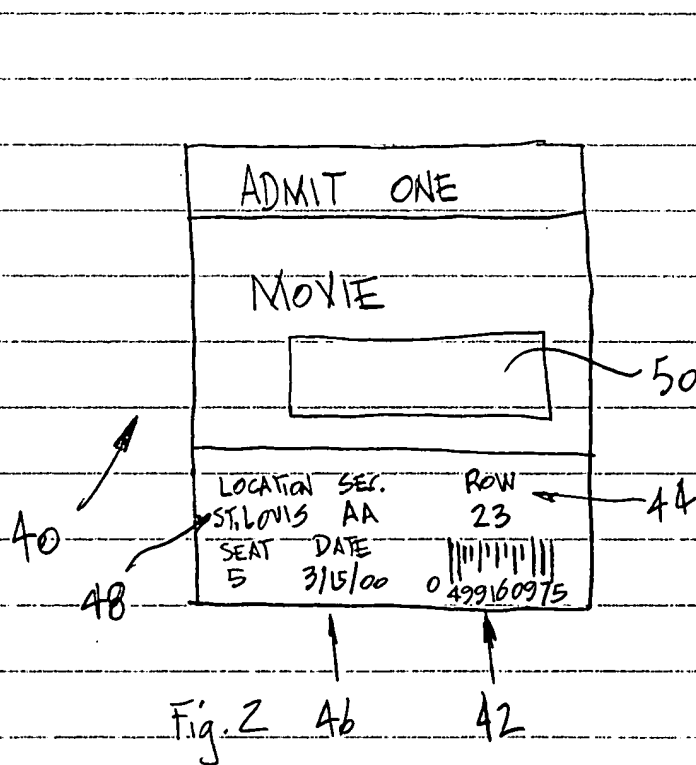 ADMIT ONE
MOVIE
50
LOCATION SEC. ROW
44
ST. LOUIS AA 23
40
SEAT DATE
48
5 3/15/00
0 499160975
Fig. 2 46 42